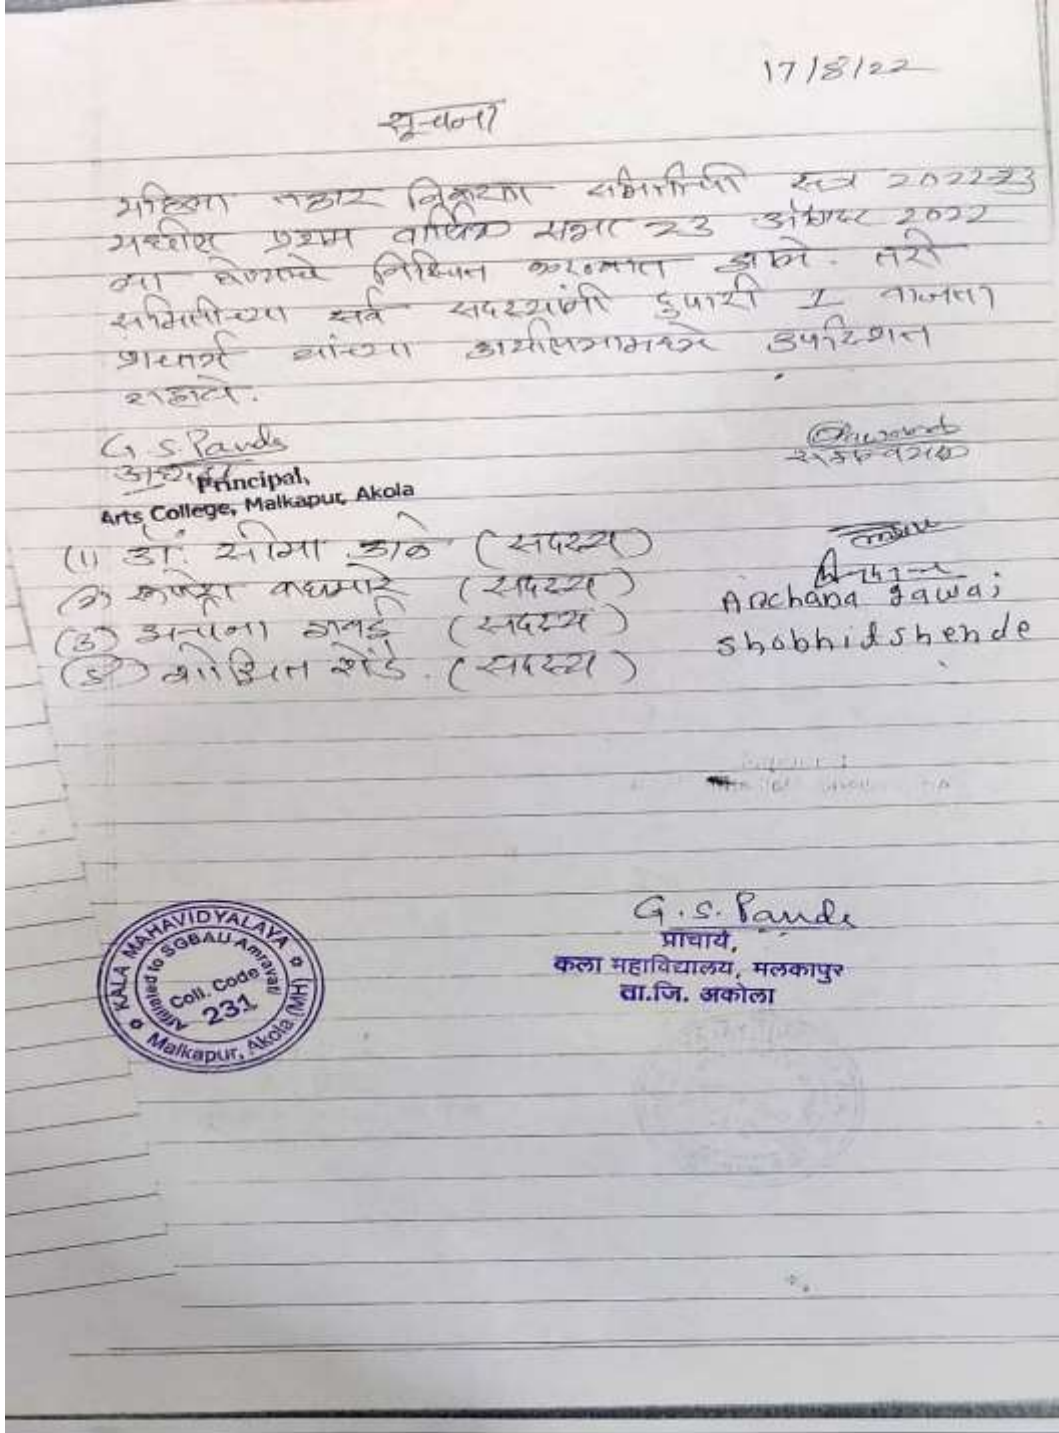 17/8/22
सूचना
महिला तक्रार निवारण समितीची सत्र 2022-23
मधील प्रथम वार्षिक सभा 23 ऑगस्ट 2022
ला घेण्याचे निश्चित करण्यात आले. तरी
समितीच्या सर्व सदस्यांनी दुपारी 1 वाजता
प्राचार्य यांच्या कार्यालयामध्ये उपस्थित
राहावे.
G. S. Pande
अध्यक्ष
समन्वयक
Principal,
Arts College, Malkapur, Akola
(1) डॉ. सीमा काळे (सदस्य)
वाघमारे (सदस्य)
(3) अर्चना गवई (सदस्य) Archana gawai
शोभित शेंडे. (सदस्य) Shobhidshende
G. S. Pande
प्राचार्य,
कला महाविद्यालय, मलकापुर
ता.जि. अकोला
KALA MAHAVIDYALAYA
Affiliated to SGBAU Amravati
Coll. Code
231
Malkapur, Akola (MH)